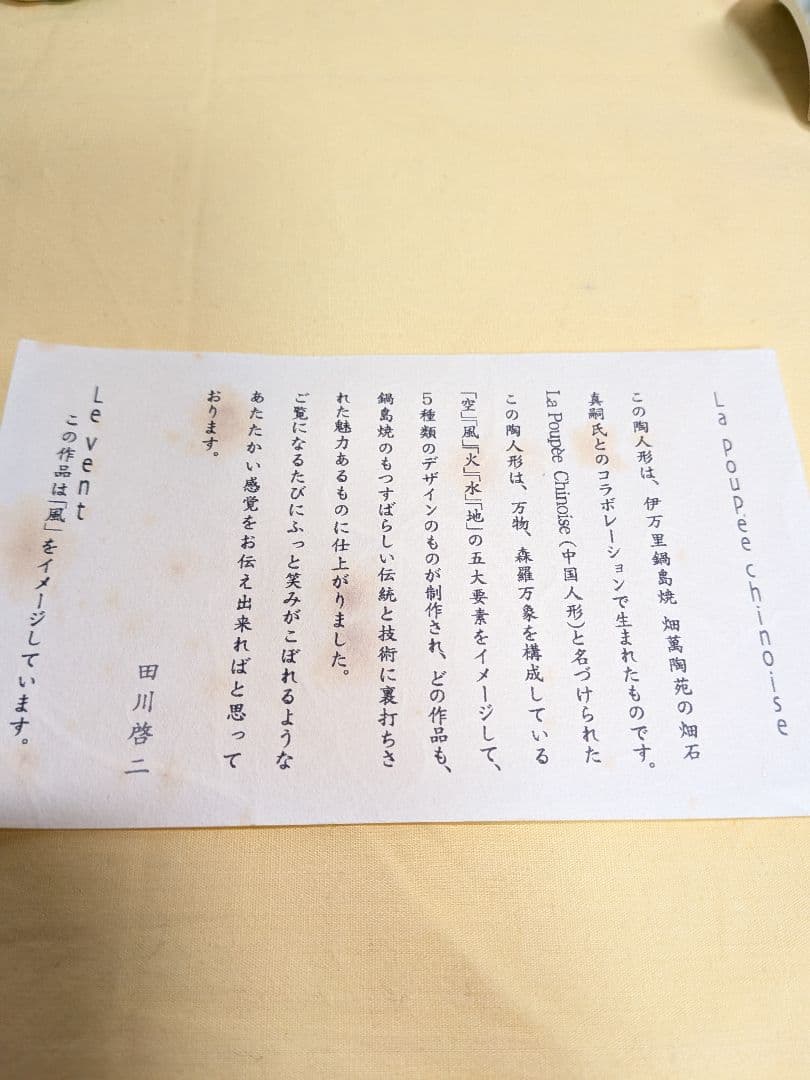 La poupée chinoise
この陶人形は、伊万里鍋島焼 畑萬陶苑の畑石
真嗣氏とのコラボレーションで生まれたものです。
La Poupée Chinoise(中国人形)と名づけられた
この陶人形は、万物、森羅万象を構成している
「空」「風」「火」「水」「地」の五大要素をイメージして、
5種類のデザインのものが制作され、どの作品も、
鍋島焼のもつすばらしい伝統と技術に裏打ちさ
れた魅力あるものに仕上がりました。
ご覧になるたびにふっと笑みがこぼれるような
あたたかい感覚をお伝え出来ればと思って
おります。
田川啓二
Le vent
この作品は「風」をイメージしています。